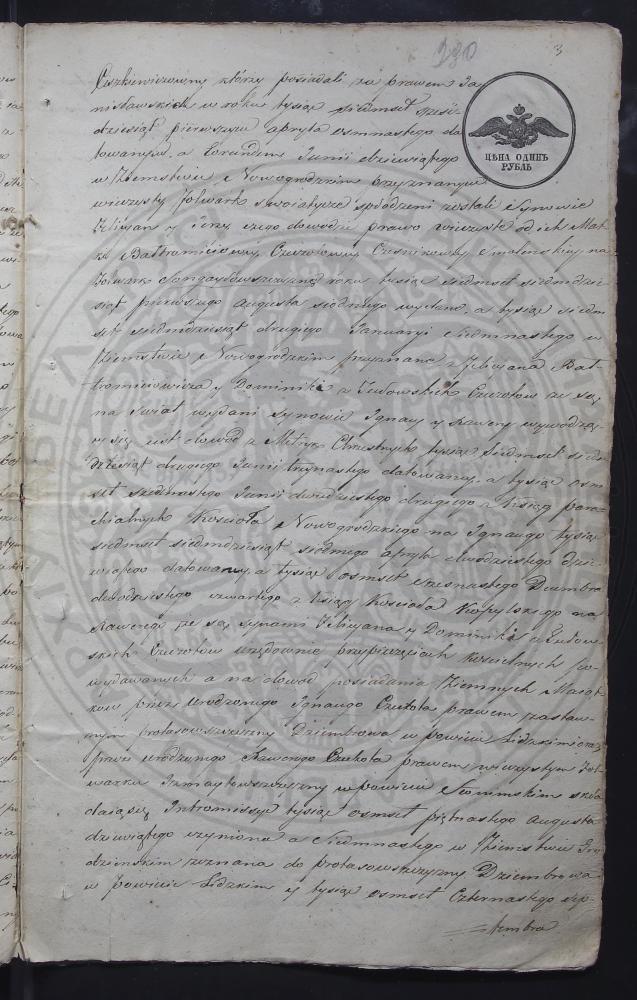 230 3
ЦѢНА ОДИНЪ
РУБЛЬ
którzy posiadali za prawem
w roku tysiąc siedmset sześć
dziesiąt pierwszym apryla osmnastego da
towanym, a Junii dziewiątego
w Ziemstwie Nowogrodzkim przyznanym
wieczysty folwark spłodzeni zostali Synowie
Felicyan y Jerzy czego dowodzi prawo wieczyste od ich Mat
ki
folwark roku tysiąc siedmset siedmdzie
siąt pierwszego Augusta siodmego wydane, a tysiąc siedm
set siedmdziesiąt drugiego Januaryi siedmnastego w
Ziemstwie Nowogrodzkim przyznane z Felicyana Bał
tromieiowicza y Dominiki z Czeczotow że są
na świat wydani Synowie Ignacy y Xawery wywodzą
cy się iest dowod z Metryk Chrzestnych tysiąc siedmset siedm
dziesiąt drugiego Junii trzynastego datowaney, a tysiąc osm
set szesnastego Junii dwudziestego drugiego z Xiąg para
chialnych Kościoła Nowogrodzkiego na Ignacego tysiąc
siedmset siedmdziesiąt siodmego apryla dwudziestego dzie
wiątego datowaney, a tysiąc osmset szesnastego Decembra
dwudziestego czwartego z Xiąg Kościoła na
Xawerego że są synami Felicyana y Dominiki z
skich Czeczotow urzędownie przy pieczęciach kościelnych
wydawanych a na dowod posiadania Ziemnych Maiąt
kow przez Urodzonego Ignacego Czeczota prawem zastaw
nym Protasowszczyzny Dziembrowa w powiecie Lidzkim oraz
przez urodzonego Xawerego Czeczota prawem wieczystym fol
warku w powiecie Słonimskim skła
daią się Intromissye tysiąc osmset piętnastego Augusta
dziewiątego czyniona a siedmnastego w Ziemstwie Gro
dzienskim zeznana do Protasowszczyzny Dziembrowa
w powiecie Lidzkim y tysiąc osmset czternastego Sep-
tembra